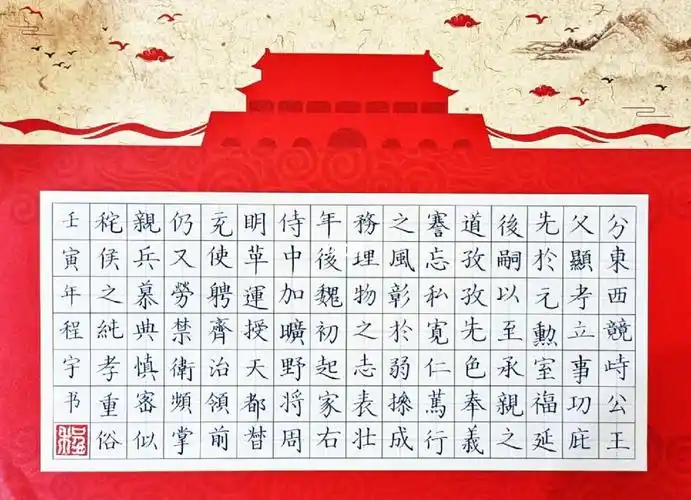 分東西競峙公王
父顯考立事功庇
先於元勳室福延
後嗣以至承親之
道孜孜先色奉義
謇忘私寬仁篤行
之風彰於弱操成
務理物之志表壯
年後魏初起家右
侍中加曠野將周
明革運授天都督
充使聘齊治領前
仍又勞禁衛頻掌
親兵慕典慎密似
秺侯之純孝重俗
壬寅年程宇书